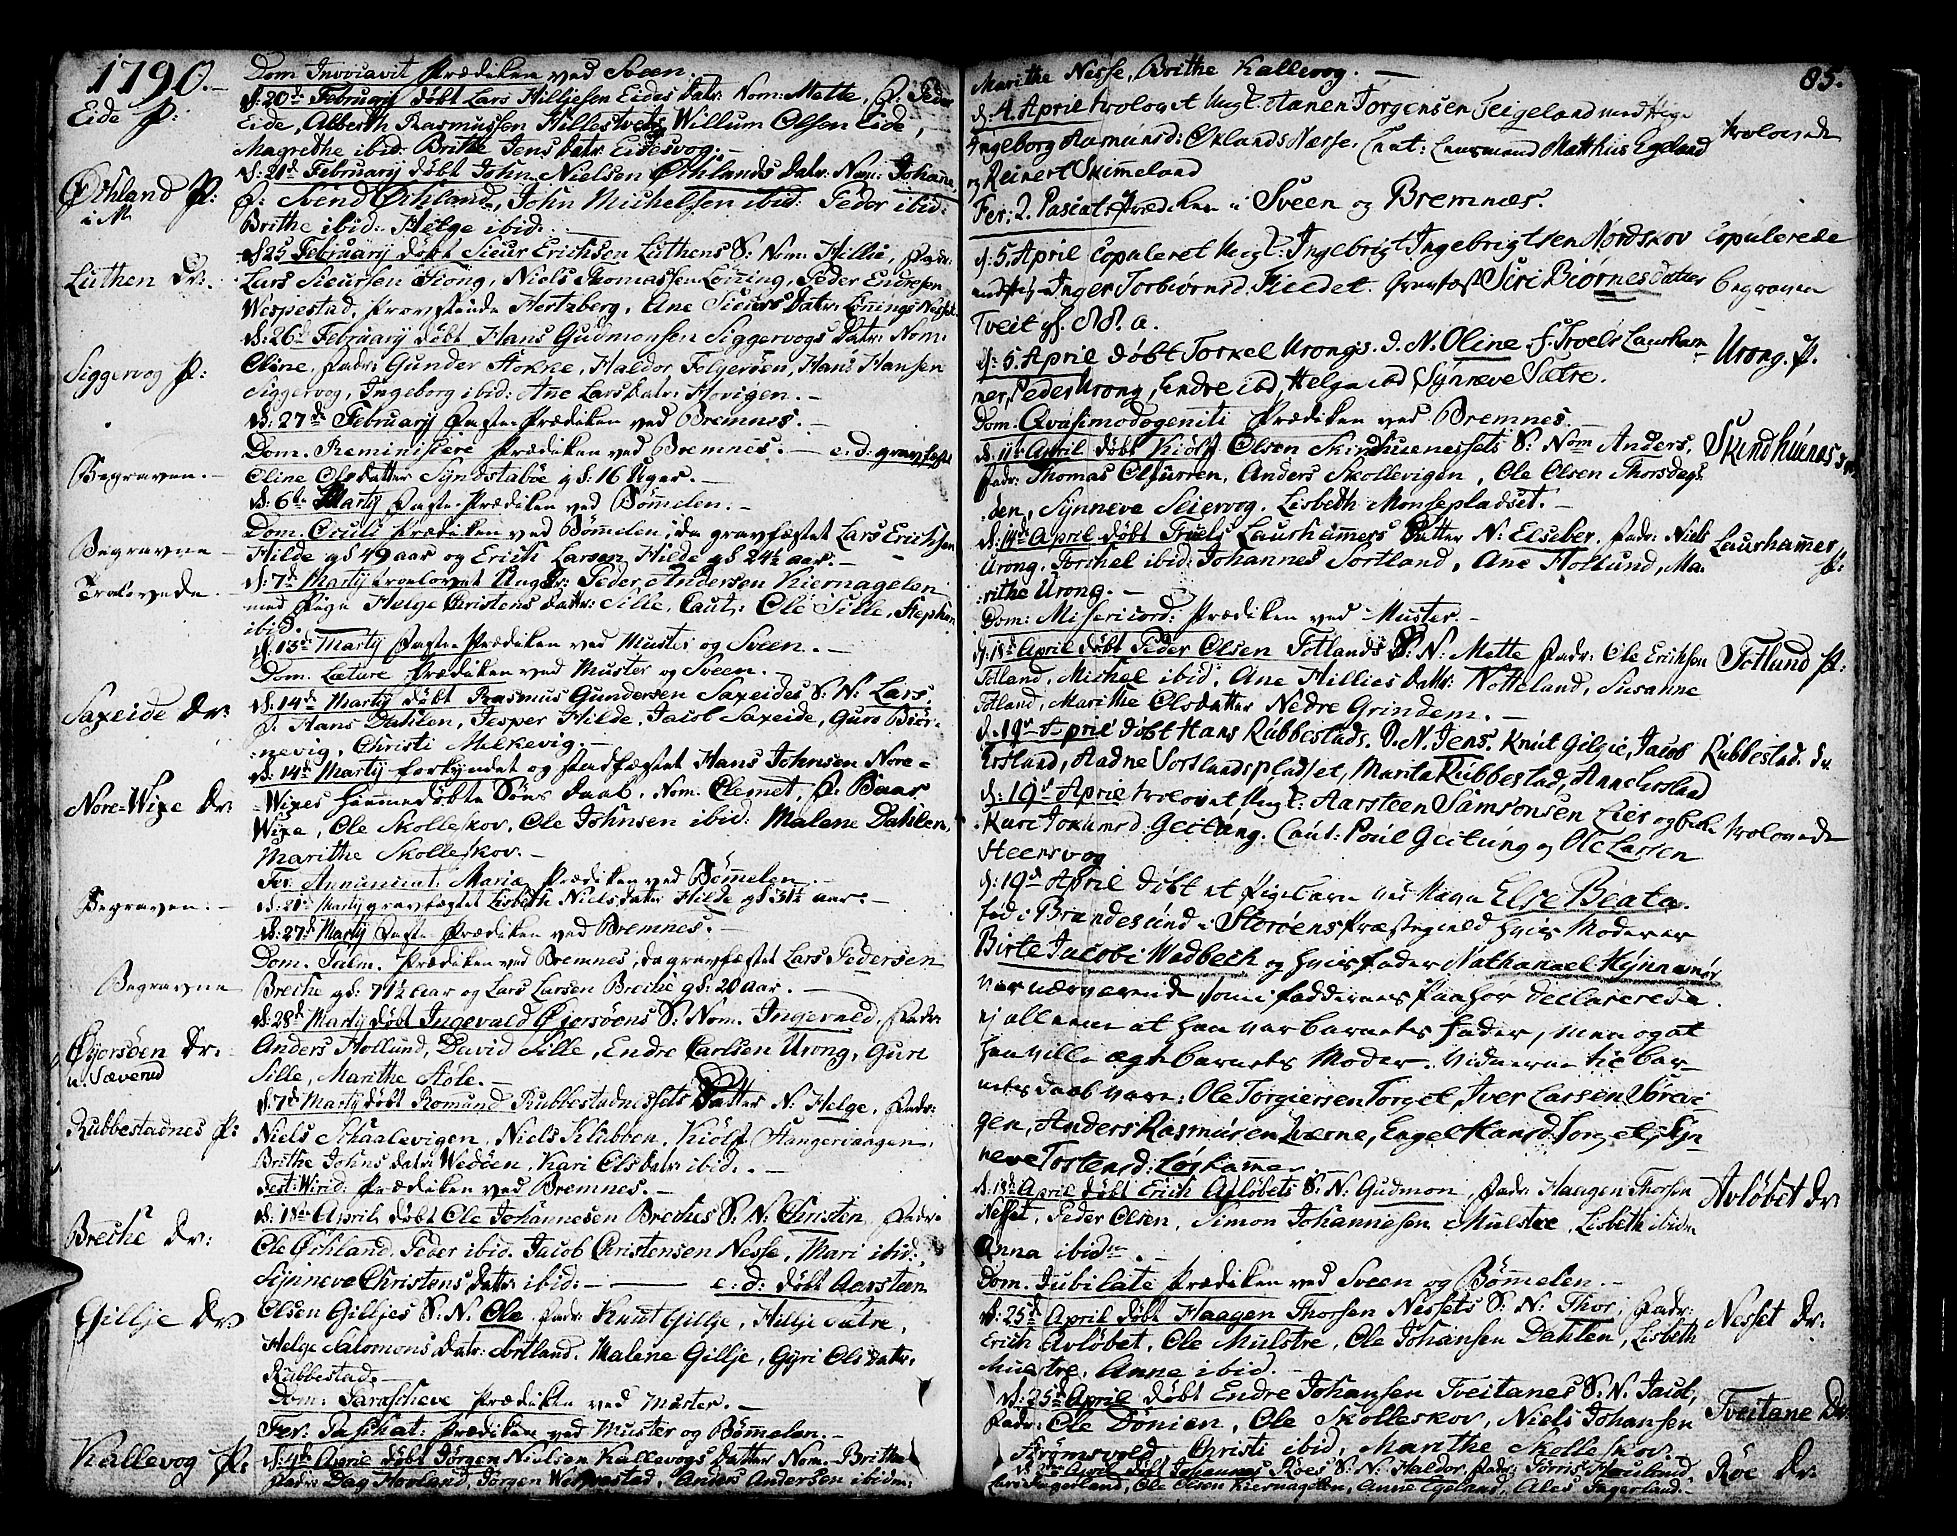 1790.
Dom. Invocavit Prædiken ved Sveen.
Eide P: d: 20de Februarij døbt Lars Hilljesen Eides Datr: Nom: Mette, F: Peder
Eide, Alberth Rasmussen Hillestveth, Willum Olsen Eide,
Magrethe ibid: Brithe Jens Datr: Eidesvog.
Øchland P: i M d: 21de Februarij døbt John Nielsen Øchlands Datr: Nom: Johanne,
F: Svend Øchland, John Michelsen ibid: Peder ibid:
Brithe ibid: Helge ibid.
Luthen Dr: d: 25 Februarij døbt Sieur Erichsen Luthens S: Nom: Hillie, Fadr:
Lars Sieursen Hiong, Niels Thomassen Løning, Peder Endresen
Wespestad, Provstinde Hertzberg, Ane Sieurs Datr: Lønings Næsset.
d: 26de Februarij døbt Hans Gudmonsen Siggervogs Datr: Nom:
Siggervog P: Oline, Fadr: Gunder Hokke, Haldor Folgerøen, Hans Hansen
Siggervog, Ingeborg ibid: Ane Lars Datr: Hovigen.
d: 27de Februarij Faste-Prædiken ved Bremnes.
Dom. Reminiscere Prædiken ved Bremnes. e. d. gravfæstet
Begraven. Oline Olsdatter Syndstabøe gl: 16 Uger.
d: 6te Martij Faste-Prædiken ved Bømmelen.
Dom. Oculi Prædiken ved Bømmelen, da gravfæstet Lars Erichsen
Begravne Hilde gl 49 aar og Erich Larsen Hilde gl 24½ aar.
Trolovede. d: 7de Martij trolovet Ungkr: Peder Andersen Kiernagelen
med Pige Helge Christens Datr: Sille, Caut: Ole Sille, Stephen
ibid.
d: 13de Martij Faste-Prædiken ved Muster og Sveen.
Dom. Lætare Prædiken ved Muster og Sveen.
Saxeide Dr: d: 14de Martij døbt Rasmus Gundersen Saxeides S: N: Lars,
F: Hans Dahlen, Jesper Hilde, Jacob Saxeide, Guro Biør-
nevig, Christi Melkevig
d: 14de Martij forkyndet og stadfæstet Hans Johnsen Nore-
Nore-Wixe Dr: Wixes hiemmedøbte Søns Daab, Nom: Clemet, F: Baar
Wixe, Ole Skolleskov, Ole Johnsen ibid: Malene Dahlen,
Marithe Skolleskov.
Fer: Annunciat: Mariæ Prædiken ved Bømmelen.
Begraven. d: 21de Martij gravfæstet Lisbeth Niels Datr: Hilde gl 31½ aar.
d: 27de Martij Faste-Prædiken ved Bremnes.
Dom. Palm. Prædiken ved Bremnes, da gravfæstet Lars Pedersen
Begravne Breche gl: 71½ Aar og Lars Larsen Breche gl: 20 Aar.
Øjorsøen Dr: u. Sæverud d: 28de Martij døbt Ingevald Øjorsøens S: Nom: Ingevald, Fadr:
Anders Hollund, David Sille, Endre Carlsen Urong, Guri
Sille, Marithe Støle.
d: 7de Martij døbt Romund Rubbestadnessets Datter N: Helge, Fadr:
Rubbestadnes P: Niels Schaalevigen, Niels Klubben, Kiølf Stangervaagen,
Brithe Johns Datr: Wedøen, Kari Ols Datr: ibid.
Fest: Wirid: Prædiken ved Bremnes.
d: 1ste April døbt Ole Johannesen Breches S: N: Christen, Fadr:
Breche Dr: Ole Øchland, Peder ibid. Jacob Christensen Nesse, Mari ibid:
Synneve Christens Datr: ibid: e: d: døbt Aarsteen
Gillje Dr: Olsen Gilljes S: N: Ole, Fadr: Knut Gillje, Hillje Sætre,
Helge Salomons Datr: Sortland, Malene Gillje, Gyri Ols Datr:
Rubbestad.
Dom: Parascheve Prædiken ved Muster.
Fer: Paschat: Prædiken ved Muster og Bømmelen.
Kallevog P: d: 4de April døbt Jørgen Nielsen Kallevogs Datter Nom: Brithe
Fadr: Dag Hovland, Jørgen Wespestad, Anders Andersen ibidm:
85.
Marithe Nesse, Brithe Kallevog.
d. 4 April trolovet Ungk: Hanen Jorgensen Teigeland med Pige
Ingeborg Aamunsd: Øklands Næsse. Caut: Lensmand Matthis Egeland trolovede
og Reinert Skimmeland
Fer: 2. Pascat: Prædiken i Sveen og Bremnæs.
d: 5. April Copuleret Ungk: Ingebrigt Ingebrigtsen Nordskov Copulerede
Inger Torbiørnsd. Gravfæst Siri Biørnes Datter begraven
Tveit gl. 88. a.
d: 5. April døbt Torkel Urongs. D. N. Oline F. Troels Laurham- Urong. P.
mer, Peder Urong, Endre ibd, Helga ibd Synneve Sætre.
Dom. Qvasimodogeniti Prædiken ved Bremnes.
d. 11te April døbt Kiølf Olsen Skindhuenessets S: Nom Anders, Skindhuenes Dr:
Fadr: Thomas Olfurren, Anders Skollevigen, Ole Olsen Thorsdags
den, Synneve Seiervog, Lisbeth Monsepladset.
d: 14de April døbt Truels Laurhammers Datter N: Elseber. Fadr: Niels Laurhammer P:
Urong, Torchel ibid: Johannes Sortland, Ane Hollund, Ma-
rithe Urong.
Dom: Misericord: Prædiken ved Muster.
d: 18de April døbt Peder Olsen Totlands D: N: Mette Fadr: Ole Erichsen Totland P:
Totland, Michel ibid: Ane Hillies Datr: Notteland, Susanne
Totland, Marithe Olsdatter Nedre Grindem.
d. 19de April døbt Hans Rubbestads. D. N. Jens. Knut Gilgie, Jacob Rubbestad. Dr.
Ersland, Aadne Sortlandspladset, Marita Rubbestad, Anne Ersland
d: 19de April trolovet Ungk: Aarsteen Samsonsen Eier og Trolovede
Kari Jokumsd: Geitung. Caut: Poul Geitung og Ole Larsen
Steensvog
d: 19de April døbt et Pigebarn ved Navn Else Beata.
fød i Brandesund i Storøens Præstegield hvis Moder er
Birte Jacobe Wadbech og hvis fader Nathanael Hynnemør
var nærværende som fadderne paahør declarerede
ej alleene at han var barnets fader, men og at
han ville ægte barnets Moder. Vidnerne til bar-
nets daab vare: Ole Torgiersen Torget, Iver Larsen Sørevi-
gen, Anders Rasmusen Qværne, Engel Hansd. Torget, Syn-
neve Tostensd: Løshammer.
d. 18de April døbt Erich Avløbets S: N: Gudmon, Fadr: Haagen Thorsen Avløbet Dr:
Nesset, Peder Olsen, Simon Johannesen Mulstre, Lisbeth ibidm
Anna ibidm.
Dom. Jubilate Prædiken ved Sveen og Bømmelen.
d: 25de April døbt Haagen Thorsen Nessets S: N: Thor, Fadr: Nesset Dr:
Erich Avløbet, Ole Mulstre, Ole Johansen Dahlen, Lisbeth
Mulstre, Anne ibid.
d: 25de April døbt Endre Johansen Tveitanes S: N: Jacob, Tveitane Dr:
Fadr: Ole Dønien, Ole Skolleskov, Niels Johansen
Strømsvold, Christi ibid, Marithe Skolleskov.
April døbt Johannes Røes S: N: Haldor, Fadr: Torris Hovlund, Røe Dr:
Lars Ingerland, Ole Olsen Kiernagelen, Anne Egeland, Ales Ingerland.